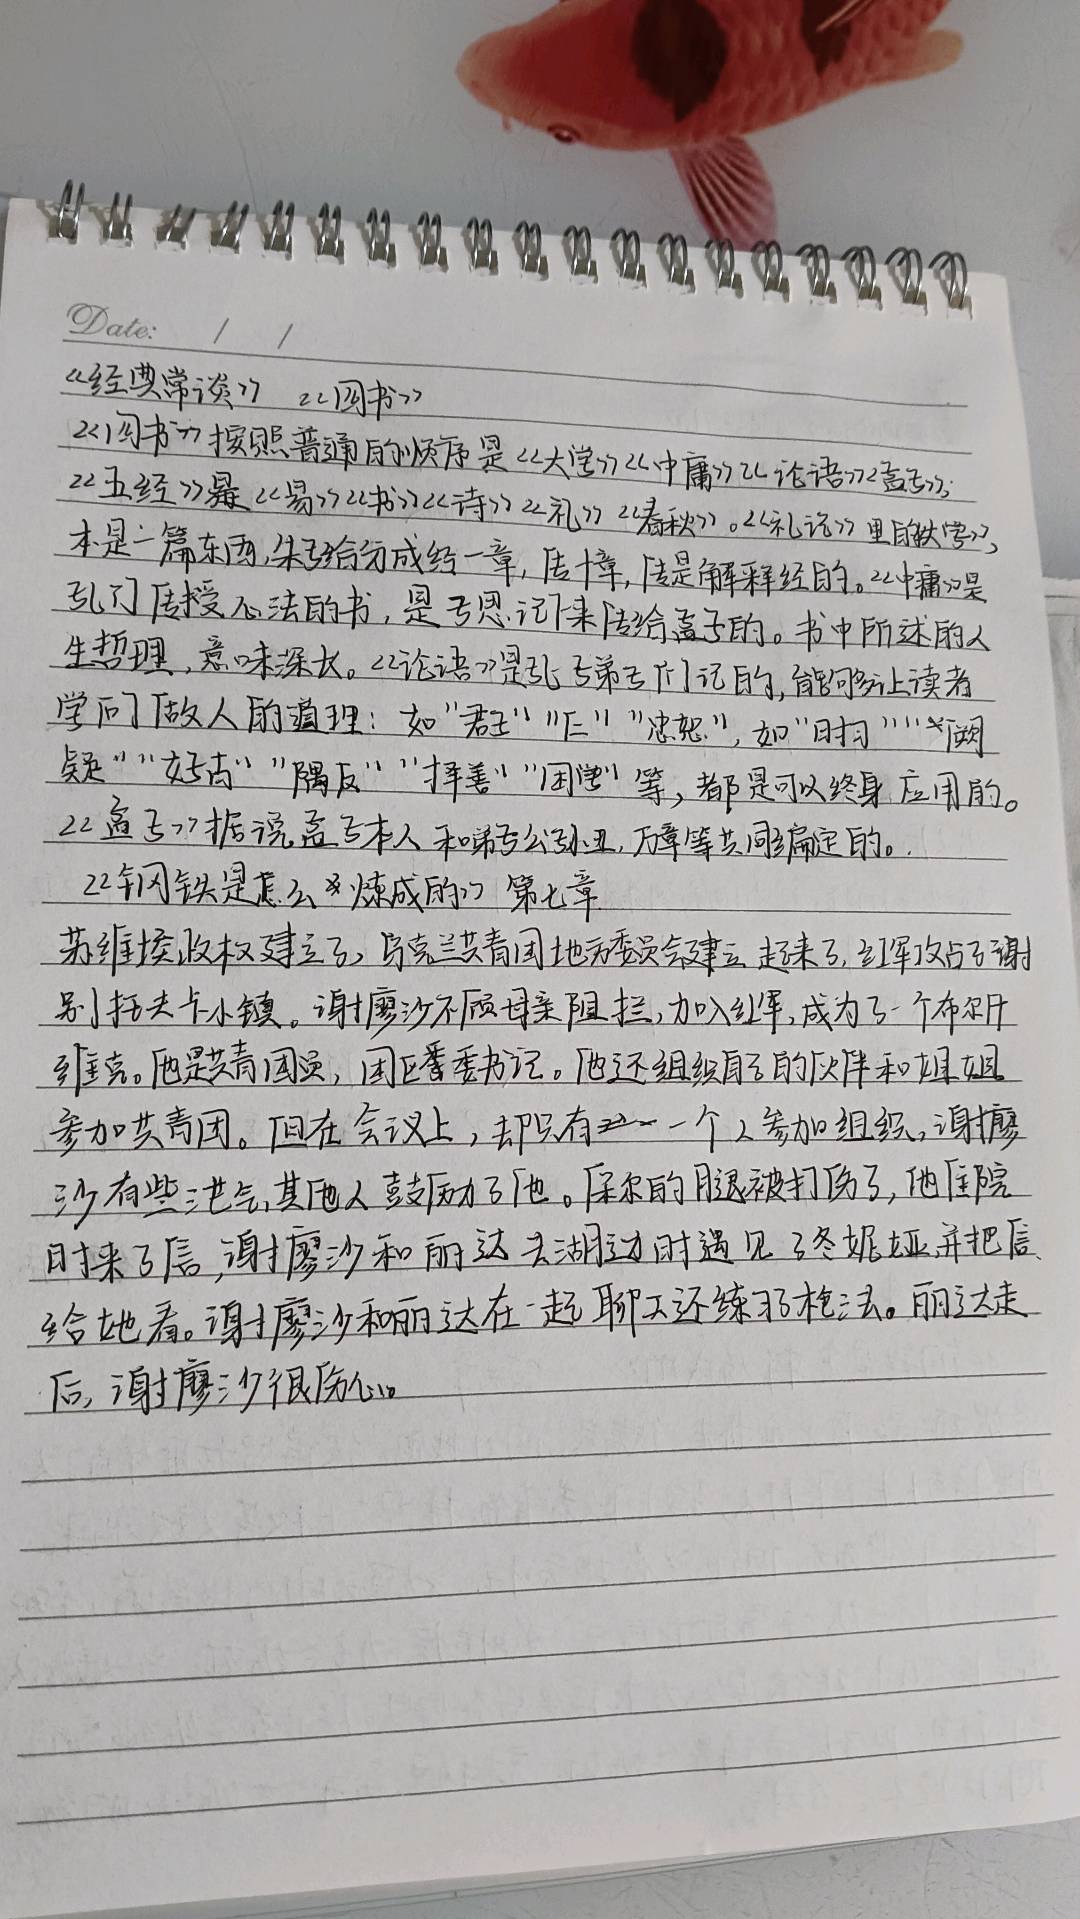 Date: / /
《经典常谈》 《四书》
《四书》按照普通的顺序是《大学》《中庸》《论语》《孟子》;
《五经》是《易》《书》《诗》《礼》《春秋》。《礼记》里的《大学》,
本是一篇东西,朱子给分成经一章,传十章,传是解释经的。《中庸》是
孔门传授心法的书,是子思记下来传给孟子的。书中所述的人
生哲理,意味深长。《论语》是孔子弟子们记的,能够让读者
学向做人的道理:如"君子""仁""忠恕",如"时习""阙
疑""好古""隅反""择善""困学"等,都是可以终身应用的。
《孟子》据说孟子本人和弟子公孙丑,万章等共同编定的。
《钢铁是怎么炼成的》 第七章
苏维埃政权建立了,乌克兰共青团地方委员会建立起来了,红军攻占了谢
别托夫卡小镇。谢廖沙不顾母亲阻拦,加入红军,成为了一个布尔什
维克。他是共青团员,团区番委书记。他还组织自己的伙伴和姐姐
参加共青团。但在会议上,却只有一个人参加组织,谢廖
沙有些泄气,其他人鼓励了他。保尔的腿被打伤了,他住院
时来了信,谢廖沙和丽达去湖边时遇见了冬妮娅,并把信
给她看。谢廖沙和丽达在一起聊天还练习了枪法。丽达走
后,谢廖沙很伤心。